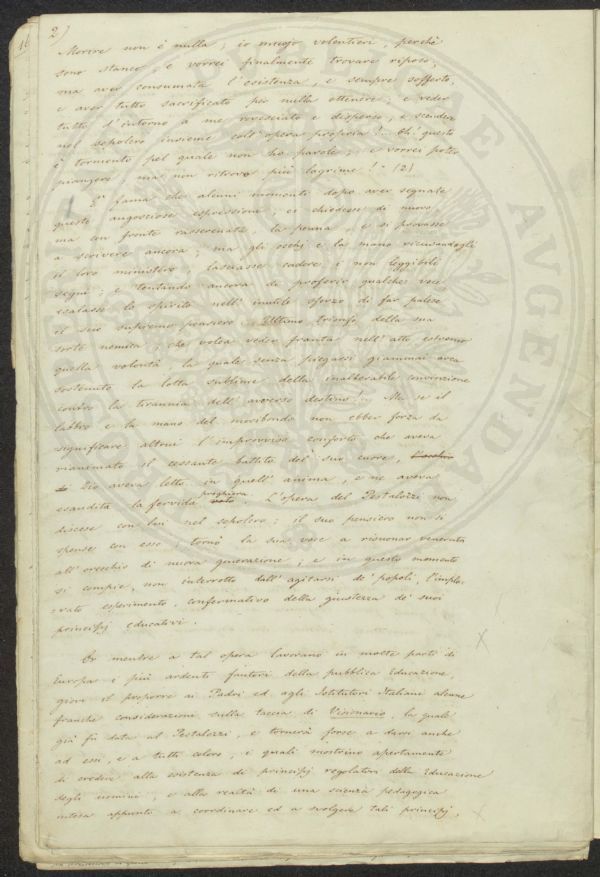 2)
16
Morire non è nulla; io muojo volentieri, perchè
sono stanco, e vorrei finalmente trovare riposo;
ma aver consumata l'esistenza, e sempre sofferto,
e aver tutto sacrificato per nulla ottenere; e veder
tutto d'intorno a me rovesciato e disperso, e scender
nel sepolcro insieme coll'opera propria!.. Oh! questo
è tormento pel quale non ho parole; e vorrei poter
piangere, ma non ritrovo più lagrime! - (2)
È fama che alcuni momenti dopo aver segnate
queste angosciose espressione, ei chiedesse di nuovo,
ma con fronte rasserenata, la penna, e si provasse
a scrivere ancora; ma gli occhi e la mano ricusandogli
il loro ministero, lasciasse cadere i non leggibili
segni; e tentando ancora di proferir qualche voce
esalasse lo spirito nell'inutile sforzo di far palese
il suo supremo pensiero. Ultimo trionfo della sua
sorte nemica, che volea veder franta nell'atto estremo
quella volontà, la quale senza piegarsi giammai avea
sostenuto la lotta sublime della inalterabile convinzione
contro la tirannia dell'avverso destino! Ma se il
labbro e la mano del moribondo non ebber forza da
significare altrui l'improvviso conforto che aveva
rianimato il cessante battito del suo cuore,
Dio aveva letto in quell'anima, e ne aveva
preghiera
esaudita la fervida voto. L'opera del Pestalozzi non
discese con lui nel sepolcro; il suo pensiero non si
spense con esso; tornò la sua voce a risuonar venerata
all'orecchio di nuova generazione; e in questo momento
si compie, non interrotto dall'agitarsi de' popoli, l'implo-
rato esperimento, confermativo della giustezza de' suoi
principj educativi.
Or mentre a tal opera lavorano in molte parti di
Europa i più ardenti fautori della pubblica Educazione,
giovi il proporre ai Padri ed agli Istitutori Italiani alcune
franche considerazioni sulla taccia di Visionario, la quale
già fu data al Pestalozzi, e tornerà forse a darsi anche
ad essi, e a tutti coloro, i quali mostrino apertamente
di credere alla esistenza di principj regolatori della Educazione
degli uomini, e alla realtà di una scienza pedagogica
intesa appunto a coordinare ed a svolgere tali principj,